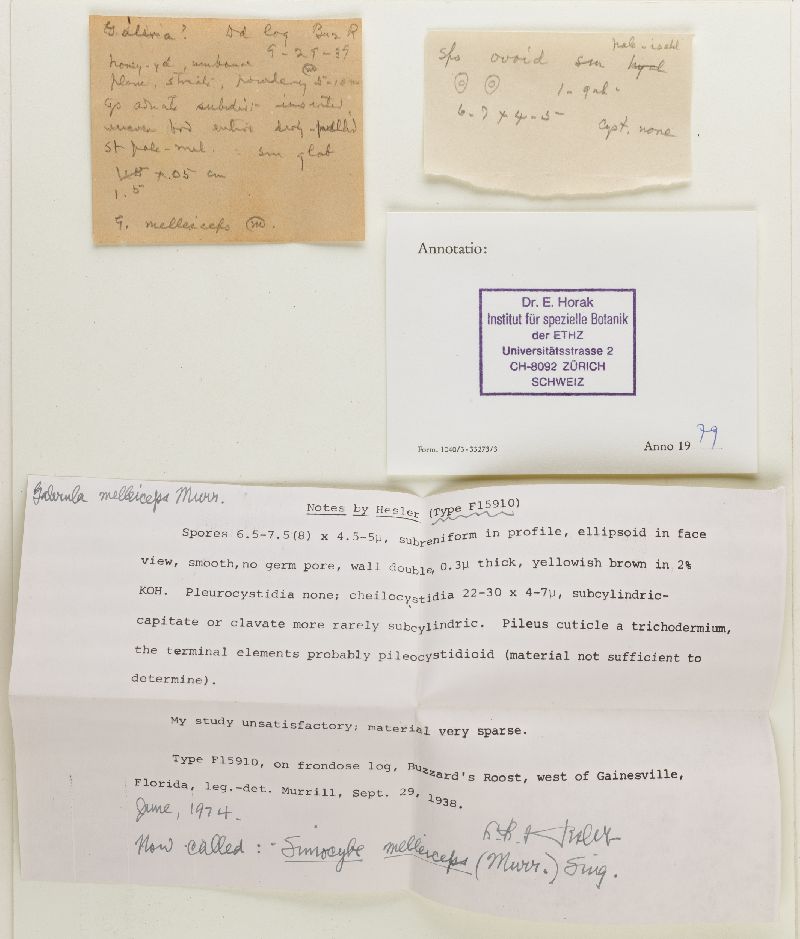 Galera? Dd log Buz R
9-29-38
honey-yel, umbonate
plane, striate, powdery
Gp adnate subdist-
uneven brd entire
St pale-mel. - sm glab
x .05 cm
1.5
G. melleiceps (m).
pale-isabel
Sps ovoid sm hyal
1-gut-
6-7 x 4-5
Cyst. none
Annotatio:
Dr. E. Horak
Institut für spezielle Botanik
der ETHZ
Universitätsstrasse 2
CH-8092 ZÜRICH
SCHWEIZ
Form. 1040/5-33273/3
Anno 19 79
Galerula melleiceps Murr.
Notes by Hesler (Type F15910)
Spores 6.5-7.5(8) x 4.5-5µ, subreniform in profile, ellipsoid in face
view, smooth, no germ pore, wall double, 0.3µ thick, yellowish brown in 2%
KOH. Pleurocystidia none; cheilocystidia 22-30 x 4-7µ, subcylindric-
capitate or clavate more rarely subcylindric. Pileus cuticle a trichodermium,
the terminal elements probably pileocystidioid (material not sufficient to
determine).
My study unsatisfactory; material very sparse.
Type F15910, on frondose log, Buzzard's Roost, west of Gainesville,
Florida, leg.-det. Murrill, Sept. 29, 1938.
June, 1974.
L.R. Hesler
Now called: - Simocybe melleiceps (Murr.) Sing.